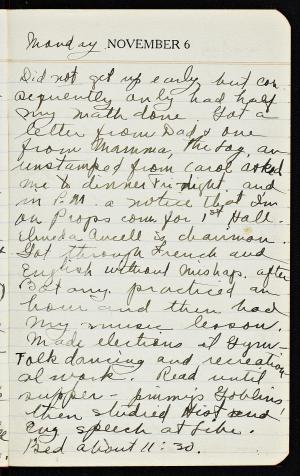 Monday NOVEMBER 6
Did not get up early, but con
sequently only had half
my math done. Got a
letter from Dad & one
from Mamma, the Log, an
unstamped from Carol asked
me to dinner Fri night, and
in P.M. a notice that I'm
on Props com. for 1st Hall.
is chairman.
Got through French and
English without mishap. after
Botany practiced an
hour and then had
my music lesson.
Made elections at Gym-
Folk dancing and recreation
al work. Read until
supper - Goblins
then studied Hist and
Eng speech at Libe.
Bed about 11:30.